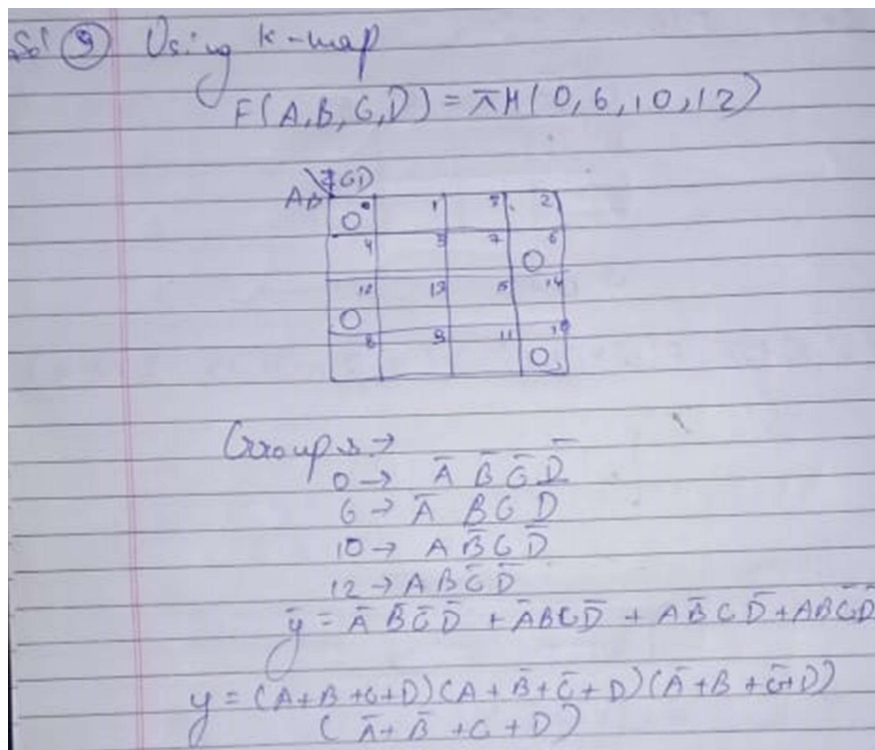 Sol 9 Using K-map
F(A,B,C,D) = πM(0,6,10,12)
AB CD
0 0 1 3 2
4 5 7 6 0
12 0 13 15 14
8 9 11 10 0
Groups →
0 → A̅ B̅ C̅ D̅
6 → A̅ B C D
10 → A B̅ C D̅
12 → A B C̅ D̅
y̅ = A̅ B̅ C̅ D̅ + A̅ B C D̅ + A B̅ C D̅ + A B C̅ D̅
y = (A+B+C+D)(A+B̅+C̅+D)(A̅+B+C̅+D)
(A̅+B̅+C+D)